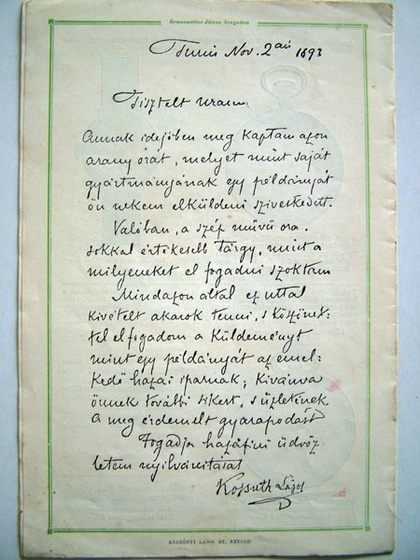 Brauswetter János Szegeden
Turin Nov. 2án 1893
Tisztelt uram.
Annak idejében meg kaptam azon
arany órát, melyet mint saját
gyártmányának egy példányát
ön nekem elküldeni sziveskedett.
Valóban, a szép művű ora
sokkal értékesebb tárgy, mint a
milyeneket el fogadni szoktam
Mindazon által ez uttal
kivételt akarok tenni, s köszönet:
tel elfogadom a küldeményt
mint egy példányát az emel:
kedő hazai iparnak; Kivánva
önnek további sikert, s üzletének
a meg érdemelt gyarapodást
Fogadja hazafiui üdvöz
letem nyilvánitását
Kossuth Lajos
ENGREINYI LAJOS NY. SZEGED